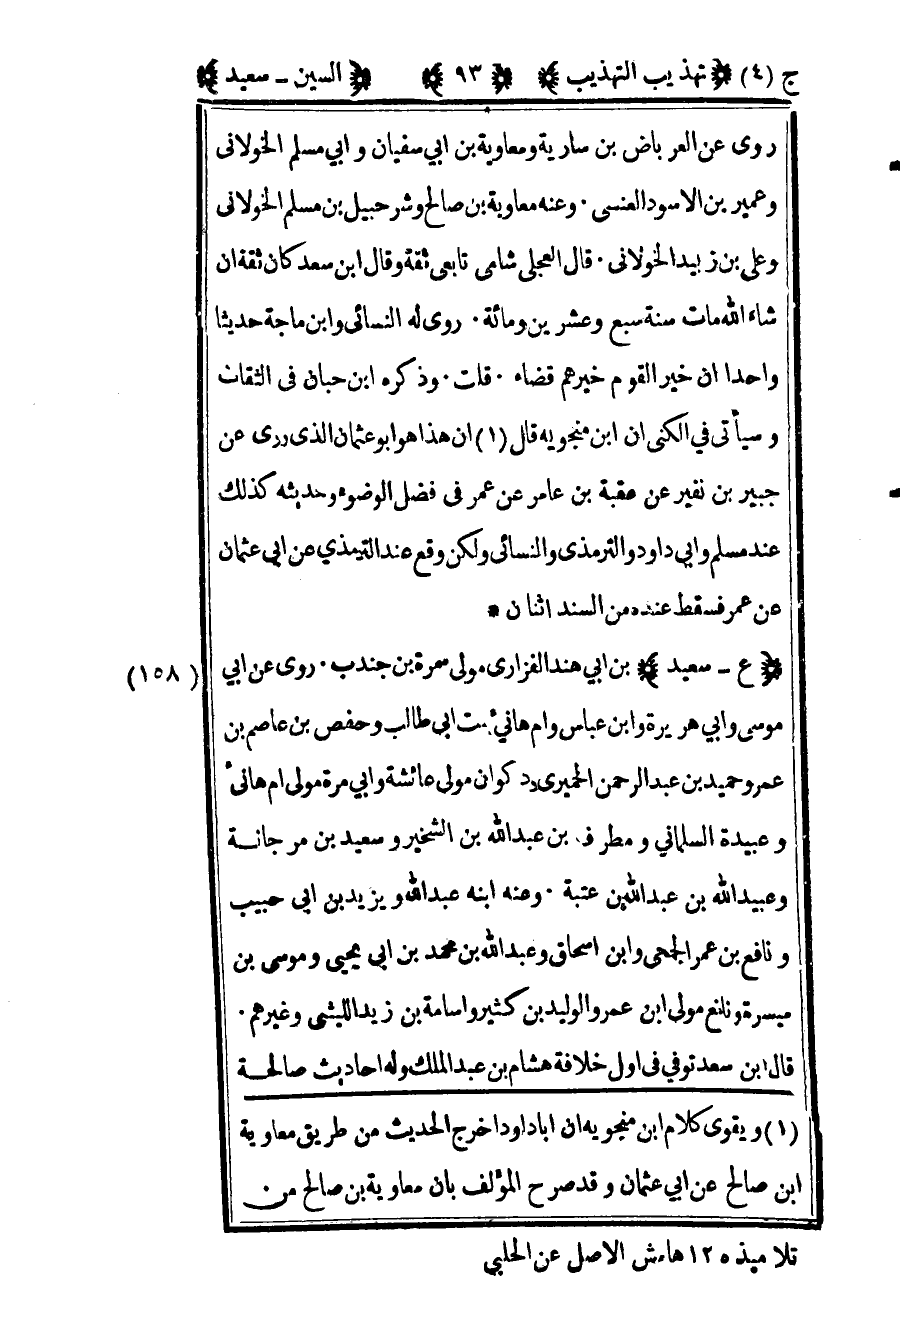 ج (٤) ﴿ تهذيب التهذيب ﴾ ﴿ ٩٣ ﴾ ﴿ السين ـ سعيد ﴾
روى عن العرباض بن سارية ومعاوية بن ابي سفيان و ابي مسلم الخولانى
وعمير بن الاسود العنسى · وعنه معاوية بن صالح وشرحبيل بن مسلم الخولانى
وعلى بن زبيد الخولانى · قال العجلى شامى تابعى ثقة وقال ابن سعد كان ثقة ان
شاء الله مات سنة سبع وعشرين ومائة · روى له النسائى وابن ماجة حديثا
واحدا ان خير القوم خيرهم قضاء · قلت · وذكره ابن حبان فى الثقات
و سيأتى في الكنى ان ابن منجويه قال (١) ان هذا هو ابو عثمان الذى روى عن
جبير بن نفير عن عقبة بن عامر عن عمر فى فضل الوضوء وحديثه كذلك
عند مسلم وابي داود والترمذى والنسائى ولكن وقع عند الترمذي عن ابى عثمان
عن عمر فسقط عنده من السند اثنان *
﴿ ع ـ سعيد ﴾ بن ابي هند الفزارى مولى سمرة بن جندب · روى عن ابي
(١٥٨)
موسى وابي هريرة وابن عباس وام هانئ بنت ابى طالب وحفص بن عاصم بن
عمر وحميد بن عبد الرحمن الحميرى وذكوان مولى عائشة وابي مرة مولى ام هانئ
و عبيدة السلماني و مطرف بن عبدالله بن الشخير و سعيد بن مرجانة
وعبيدالله بن عبدالله بن عتبة · وعنه ابنه عبدالله و يزيد بن ابى حبيب
و نافع بن عمر الجمحى وابن اسحاق وعبدالله بن محمد بن ابي يحيى و موسى بن
ميسرة ونافع مولى ابن عمر والوليد بن كثير واسامة بن زيد الليثى وغيرهم ·
قال ابن سعد توفي فى اول خلافة هشام بن عبد الملك وله احاديث صالحة
(١) و يقوى كلام ابن منجويه ان اباداود اخرج الحديث من طريق معاوية
ابن صالح عن ابي عثمان و قد صرح المؤلف بان معاوية بن صالح من
تلاميذه ١٢ هامش الاصل عن الحلبي